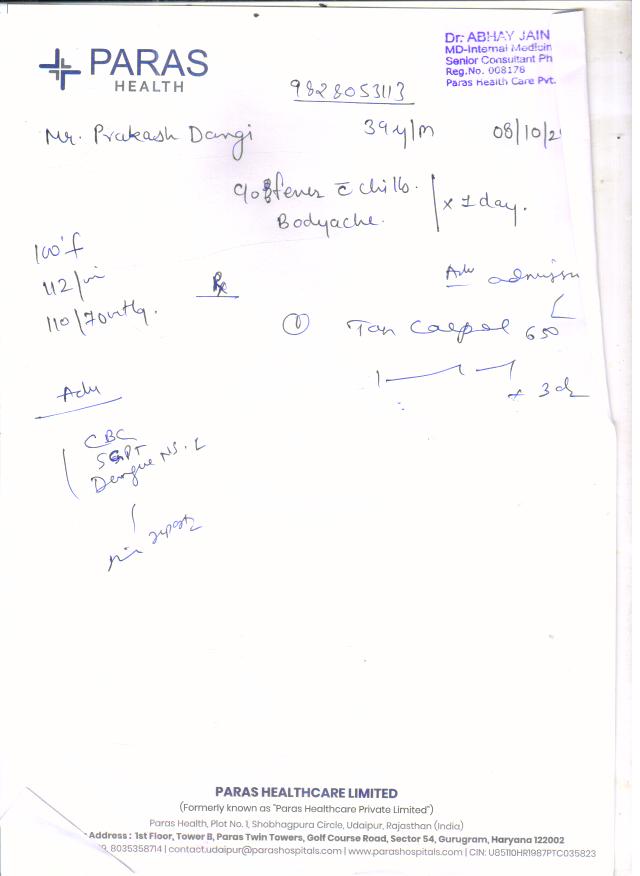 PARAS
HEALTH
Dr. ABHAY JAIN
MD-Internal Medicin
Senior Consultant Ph
Reg.No. 008178
Paras Health Care Pvt.
9828053113
Mr. Prakash Dangi 39y/m 08/10/2
c/o fever c̄ chills.
Bodyache. x 1 day.
100°f
112/mi
110/70mmHg.
Rx
Adv admission
① Tab Calpol 650
1 1 1
x 3d
Adv
CBC
SGPT
Dengue NS-1
PARAS HEALTHCARE LIMITED
(Formerly known as "Paras Healthcare Private Limited")
Paras Health, Plot No. 1, Shobhagpura Circle, Udaipur, Rajasthan (India)
Address : 1st Floor, Tower B, Paras Twin Towers, Golf Course Road, Sector 54, Gurugram, Haryana 122002
9, 8035358714 | contact.udaipur@parashospitals.com | www.parashospitals.com | CIN: U85110HR1987PTC035823